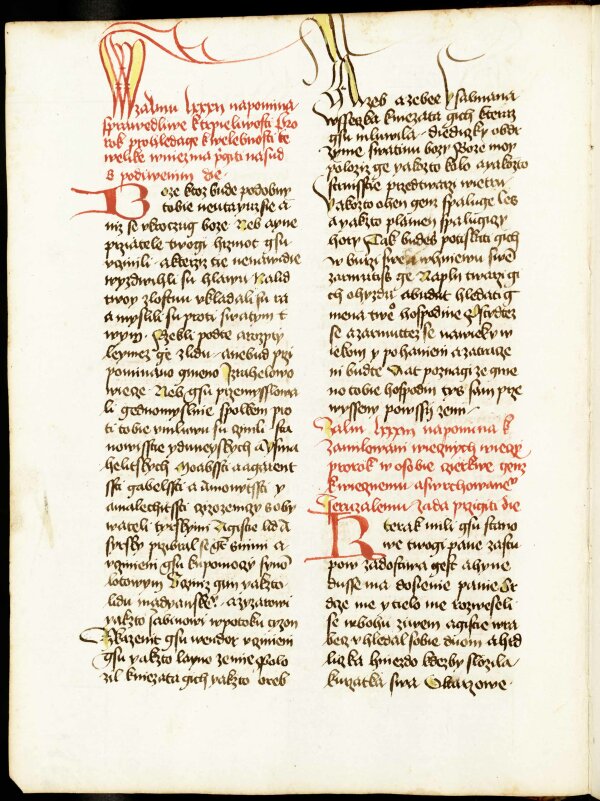 W zalmu lxxxii napomina
sprawedliwe k trpieliwosti Pro
rok prohledage k welebnosti te
welike w niezma prziti na sud
s podiwenim die ·
Boze ktoz bude podobny
tobie neutayuzsie a
niz se vkroczug boze Neb ayne
przatele twogi hrzmot gsu
vczinili · a kterziz tie nenawidie
wyzdwihli su hlawu Nalid
twoy zlostiu vkladali su ra
a myslili su proti swatym t
wym · Rzekli podte a rozpty
leymez ge z lidu · anebud przi
pominano gmeno Izrahelowo
wiecze · Neb gsu przemysslowa
li gednomyslnie spolkem pro
ti tobie vmluwu su czinili · sta
nowisstie ydumeyskych a ysma
helitskych Moabsti a agarent
sti gabelssti a Amonytsti y
amalechitsti czizozemczy s oby
wateli tyrskymi Agistie ld A
syrsky przissal se ge s nimi a
vczinieni gsu ku pomoczy synom
lotowym Vczin z gim yakzto
lidu madyanske° · a zyzarowi
yakzto iabinowi w potoku cyzon
Zkazeni t gsu w endor vczinieni
gsu yakzto layno zemie Polo
zil kniezata gich yakzto oreb
A zeb a zebee y salmana
wssezka kniezata gich kterziz
gsu mluwili · diedizky obdr
zyme swatiny bozy Boze moy
poloziz ge yakzto kolo a yakzto
stanisstie przed twarzi wietru
yakzto ohen genz spaluge les
a yakzto plamen spalugiczy
hory Tak budes potiskati gich
w burzi swe a w hniewu swe
zarmutiss ge Napln twarzi gi
ch ohyzdu · a budut hledati g
mena twe° hospodine Pristydte
se a zarmutte se na wieky w
iekom y pohanieni a zatrace
ni budte Dat poznagi ze gme
no tobie hospodin tys sam prze
wyssem po wssij zemi ·
Zalm lxxxiii napomina k
zamilowani wiecznych wieczy
prorok w osobie czierkwe genz
k wiecznemu a swrchowane°
Ieruzalemu zada prziiti die
Kterak mili gsu stano
we twogi pane zastu
pow zadostiwa gest a hyne
dusse ma do sienie panie Sr
dce me y tielo me rozweseli
se w bohu ziwem agistie wra
bec vhledal sobie duom a hrd
liczka hniezdo kdezby slozila
kurzatka swa Oltarzowe ·